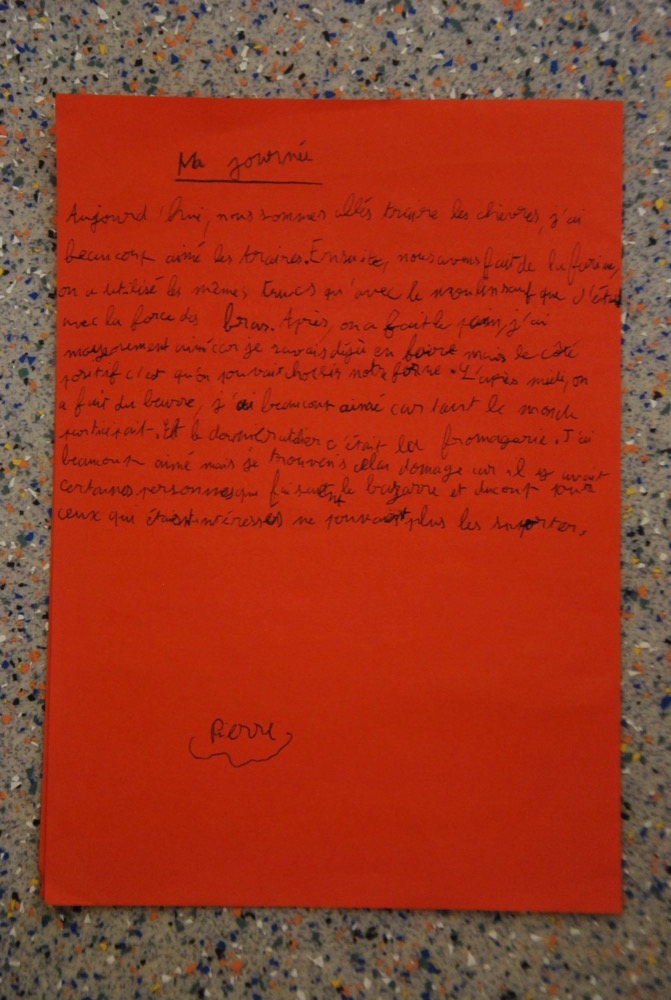 Ma journée
Aujourd'hui, nous sommes allés traire les chèvres, j'ai
beaucoup aimé les traires. Ensuite, nous avons fait de la farine,
on a utilisé les mêmes trucs qu'avec le moulin sauf que c'était
avec la force des bras. Après, on a fait le pain, j'ai
moyennement aimé car je savais déjà en faire mais le côté
positif c'est qu'on pouvait choisir notre forme. L'après midi, on
a fait du beurre, j'ai beaucoup aimé car tout le monde
participait. Et le dernier atelier c'était la fromagerie. J'ai
beaucoup aimé mais je trouvais cela domage car il y avait
certaines personnes qui faisaient le bazarre et ducoup pour
ceux qui étaient intéressés ne pouvait plus les suporter.
Pierre